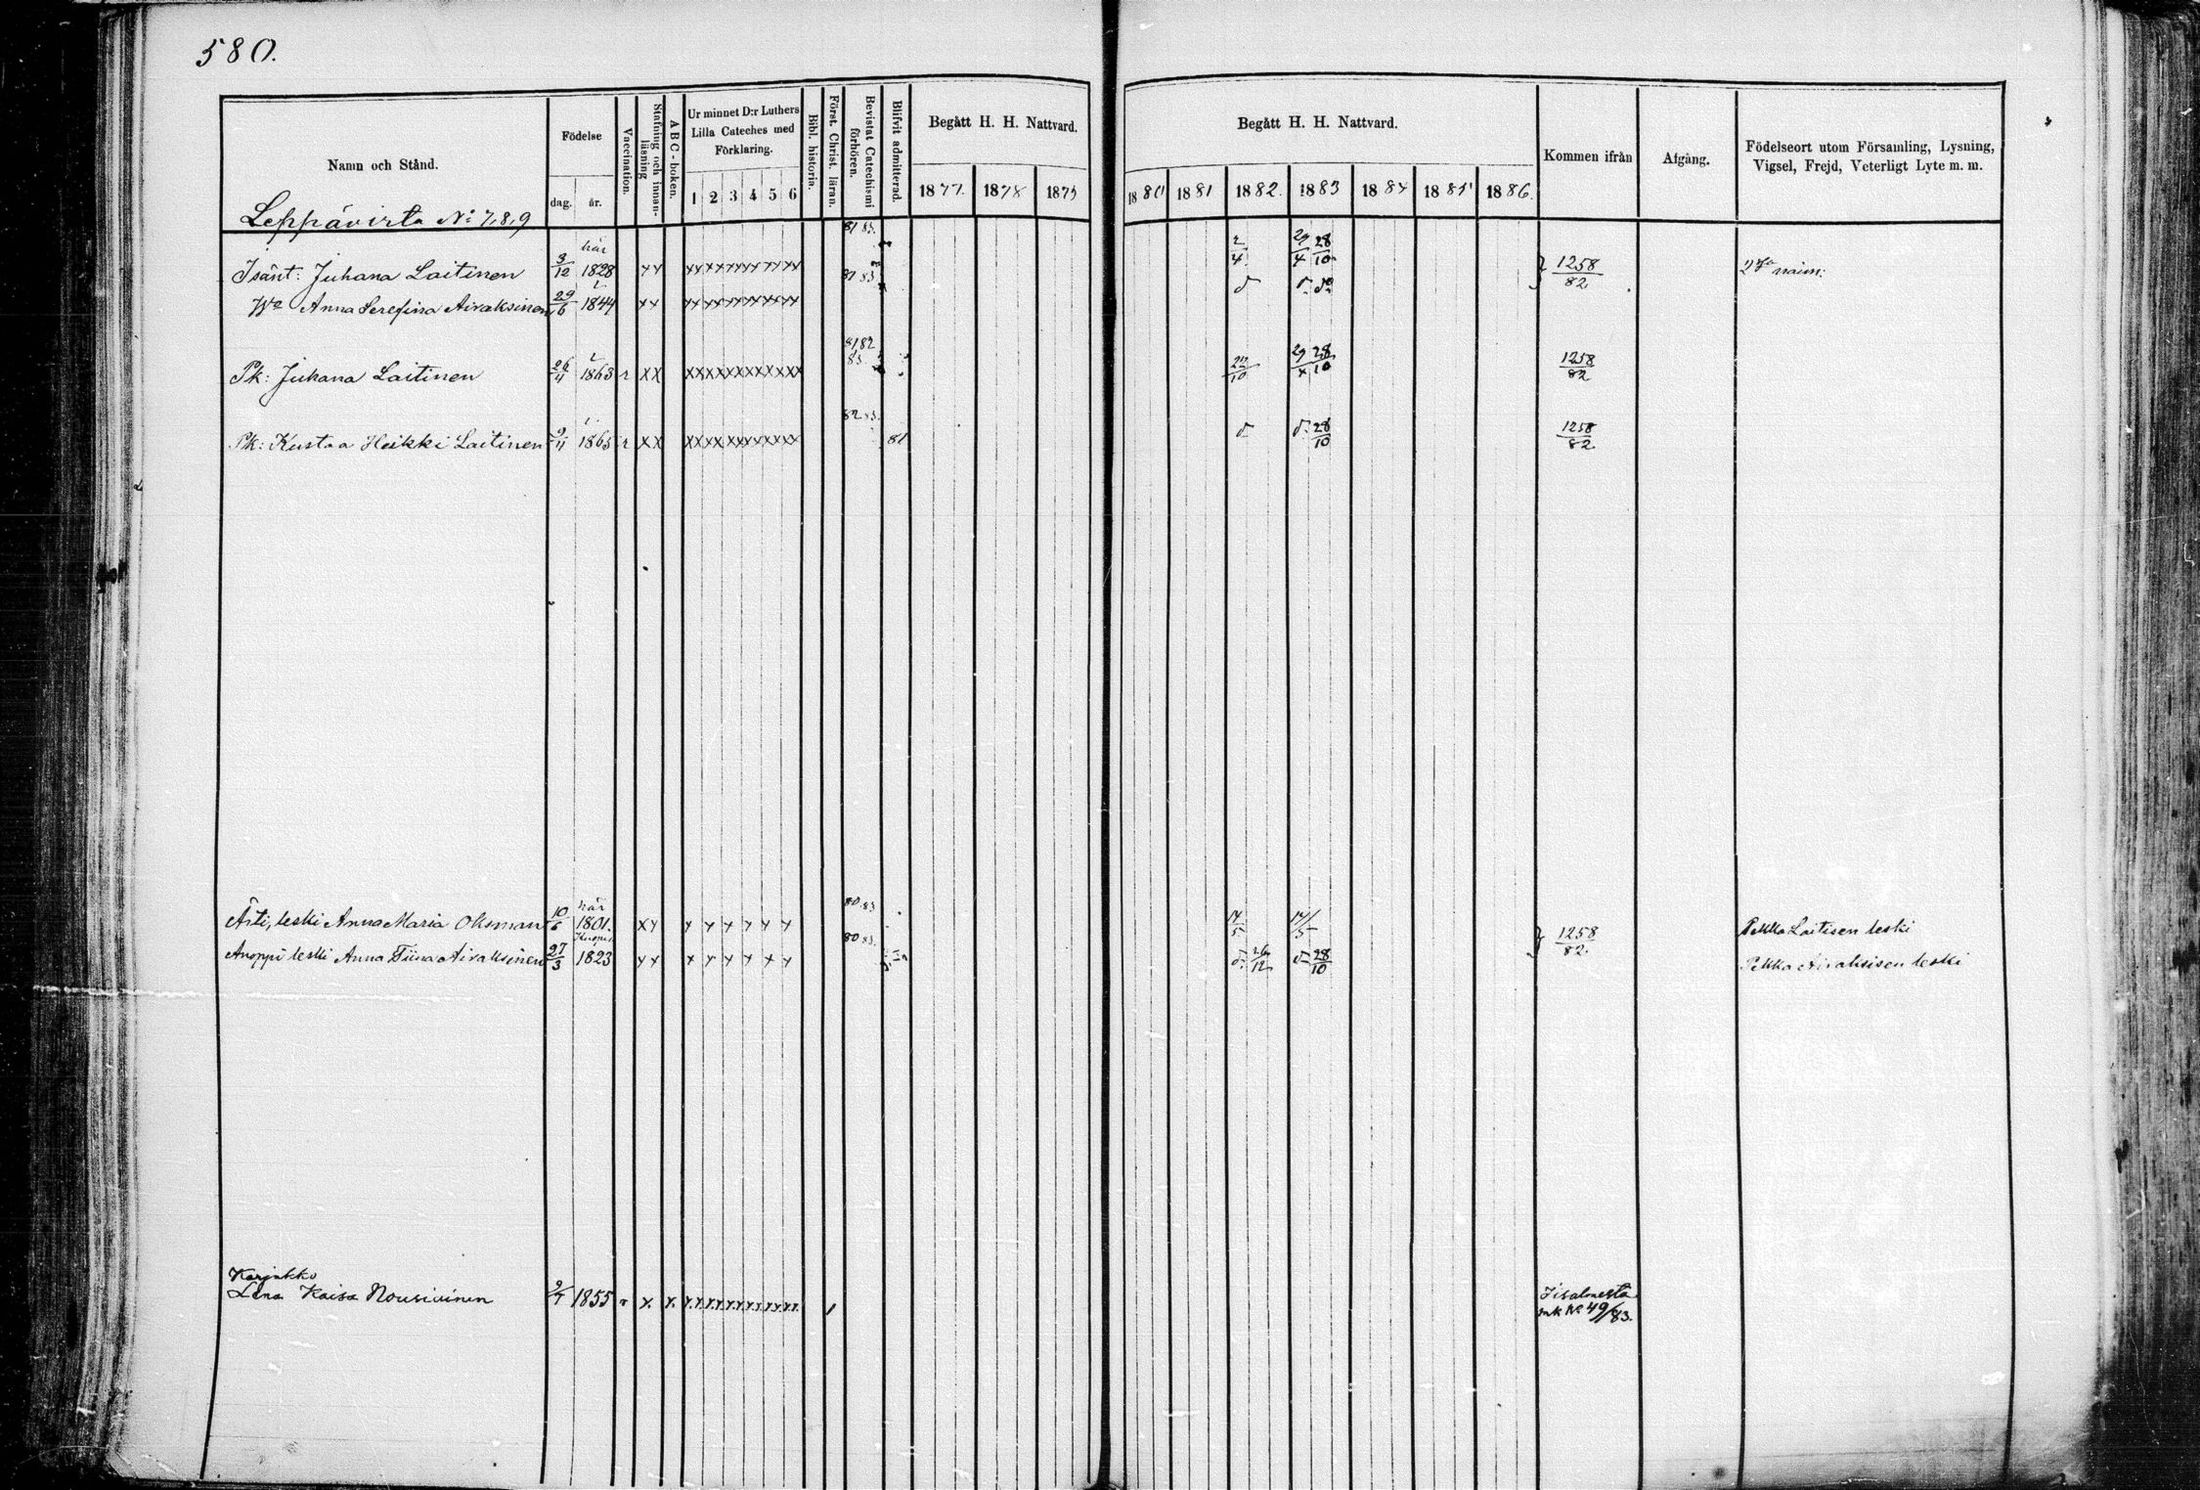 580.
Namn och Stånd.
Födelse
dag. år.
Vaccination.
Stafning och innanläsning
ABC-boken.
Ur minnet D:r Luthers Lilla Cateches med Förklaring.
1 2 3 4 5 6
Bibl. historia.
Först. Christ. läran.
Bevistat Catechismi förhören.
Blifvit admitterad.
Begått H. H. Nattvard.
1877. 1878 1879
Begått H. H. Nattvard.
1880 1881 1882. 1883 1884 1885 1886.
Kommen ifrån
Afgång.
Födelseort utom Församling, Lysning, Vigsel, Frejd, Veterligt Lyte m. m.
Leppävirta No 7,8,9
81 83.
här
Isänt: Juhana Laitinen 3/12 1828 xx xxxxxxxxxxx 2/4 29/4 28/10 1258/82
81 83
Wo Anna Serefina Airaksinen 29/6 1844 xx xxxxxxxxxxx
81 82 83.
Pk: Juhana Laitinen 26/11 1863 r XX XXXXXXXXXXXX 22/10 29/4 28/10 1258/82
82 83.
Pk: Kustaa Heikki Laitinen 9/11 1865 r XX XXXXXXXXXXXX 81 28/10 1258/82
här 80 83
Äiti, leski Anna Maria Oksman 10/6 1801. xx x x x x x x 14/5 14/5 1258/82 Pekka Laitisen leski
Kuopio 80 83.
Anoppi leski Anna Tiina Airaksinen 27/3 1823 xx x x x x x x 26/12 28/10 Pekka Airaksisen leski
Karjakko
Lena Kaisa Nousiainen 9/7 1855 r x. x. x.x.x.x.x.x.x. 1 Iisalmesta
mk No 49/83.